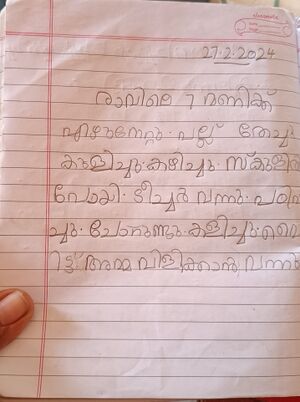 27.2.2024
രാവിലെ 7 മണിക്ക്
എഴുന്നേറ്റു. പല്ല് തേച്ചു
കുളിച്ചു. കഴിച്ചു. സ്കൂളിൽ
പോയി. ടീച്ചർ വന്നു. പഠിപ്പി
ച്ചു. ചോറുണ്ടു. കളിച്ചു. വൈ
ിട്ട് അമ്മ വിളിക്കാൻ വന്നു